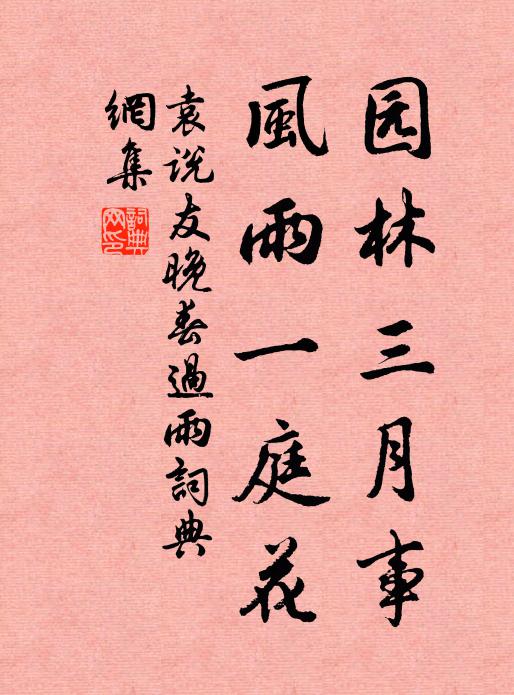 园林三月事
風雨一庭花
袁説友晚春過雨詞典
網集
詞典
网印